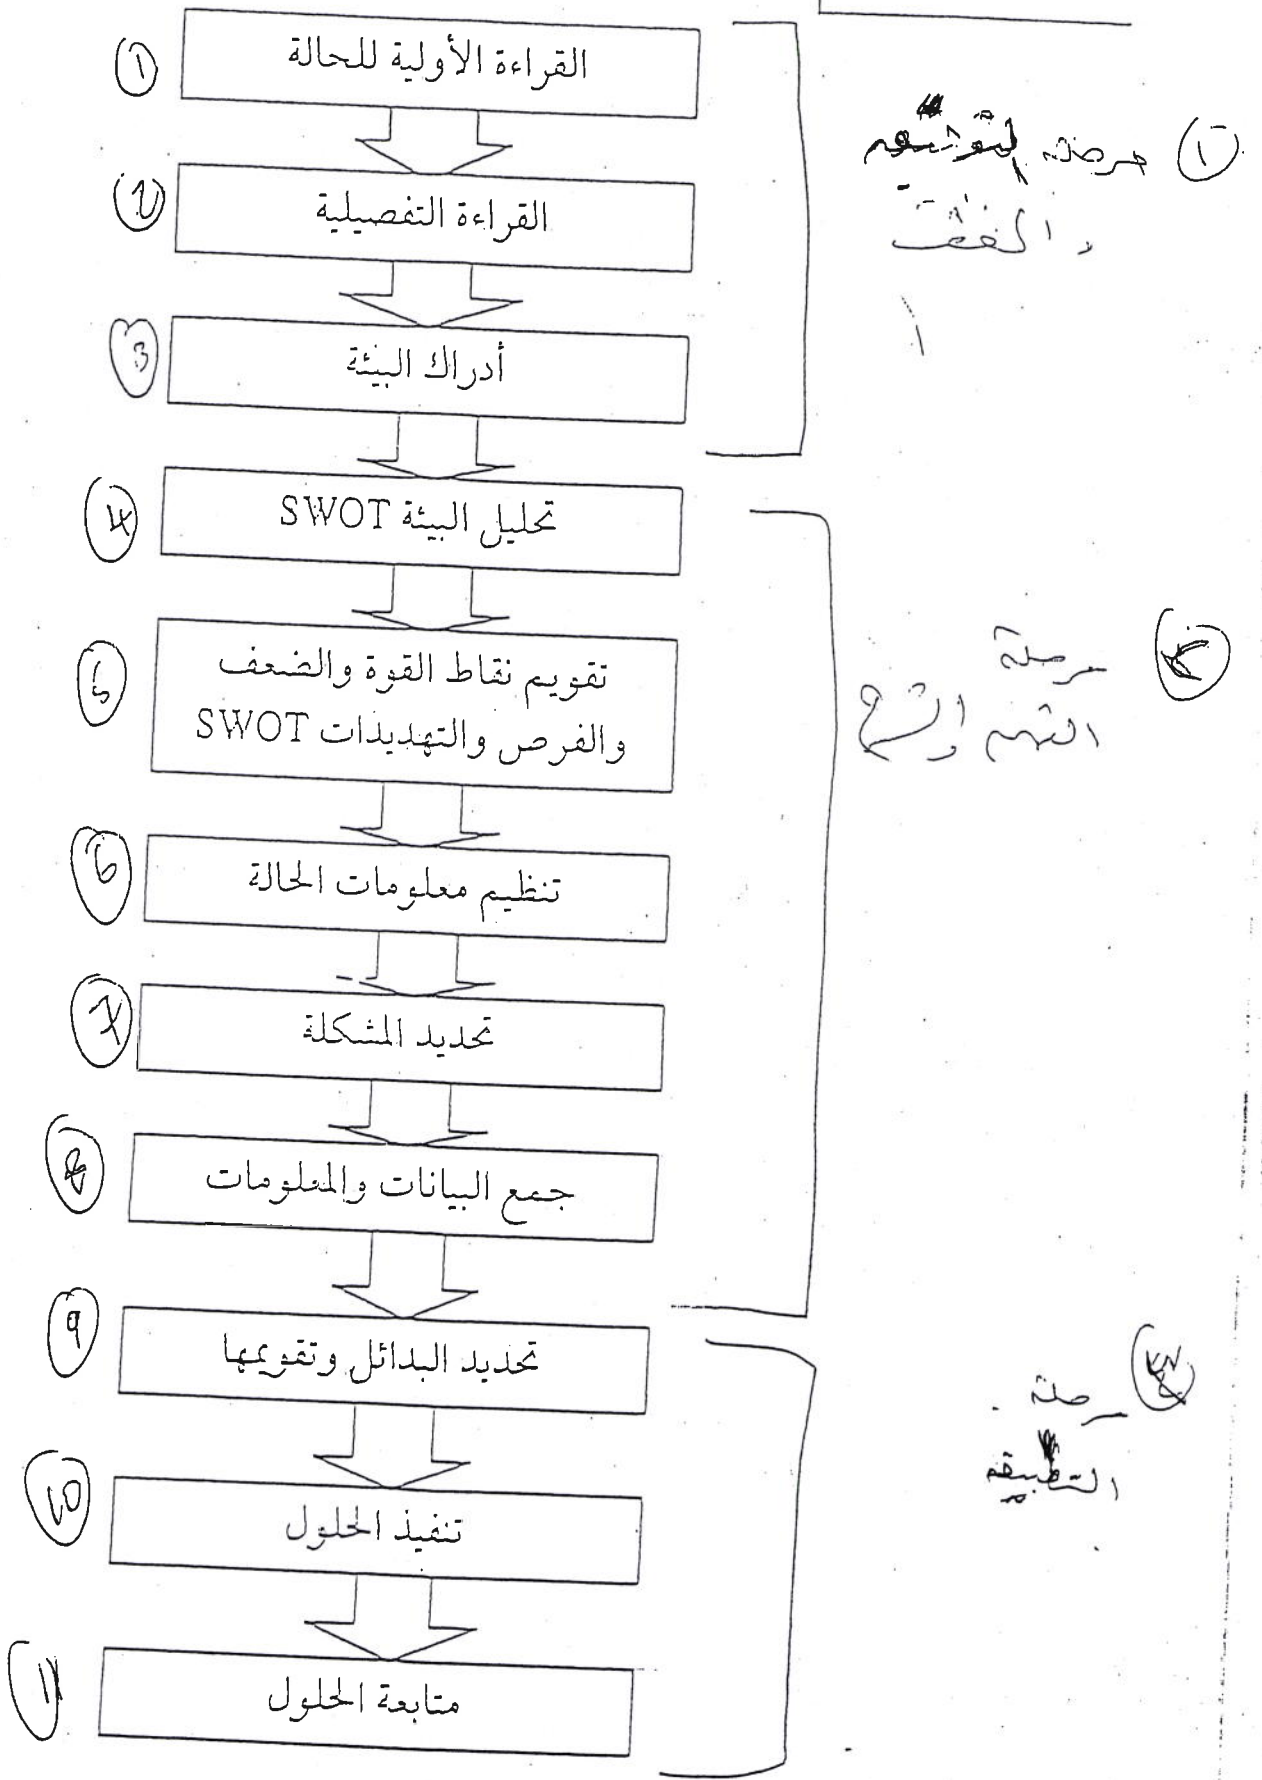 ① القراءة الأولية للحالة
2 القراءة التفصيلية
3 أدراك البيئة
4 تحليل البيئة SWOT
5 تقويم نقاط القوة والضعف
والفرص والتهديدات SWOT
6 تنظيم معلومات الحالة
7 تحديد المشكلة
8 جمع البيانات والمعلومات
9 تحديد البدائل وتقويمها
10 تنفيذ الحلول
11 متابعة الحلول
① مرحلة
مرحلة
مرحلة
التطبيق